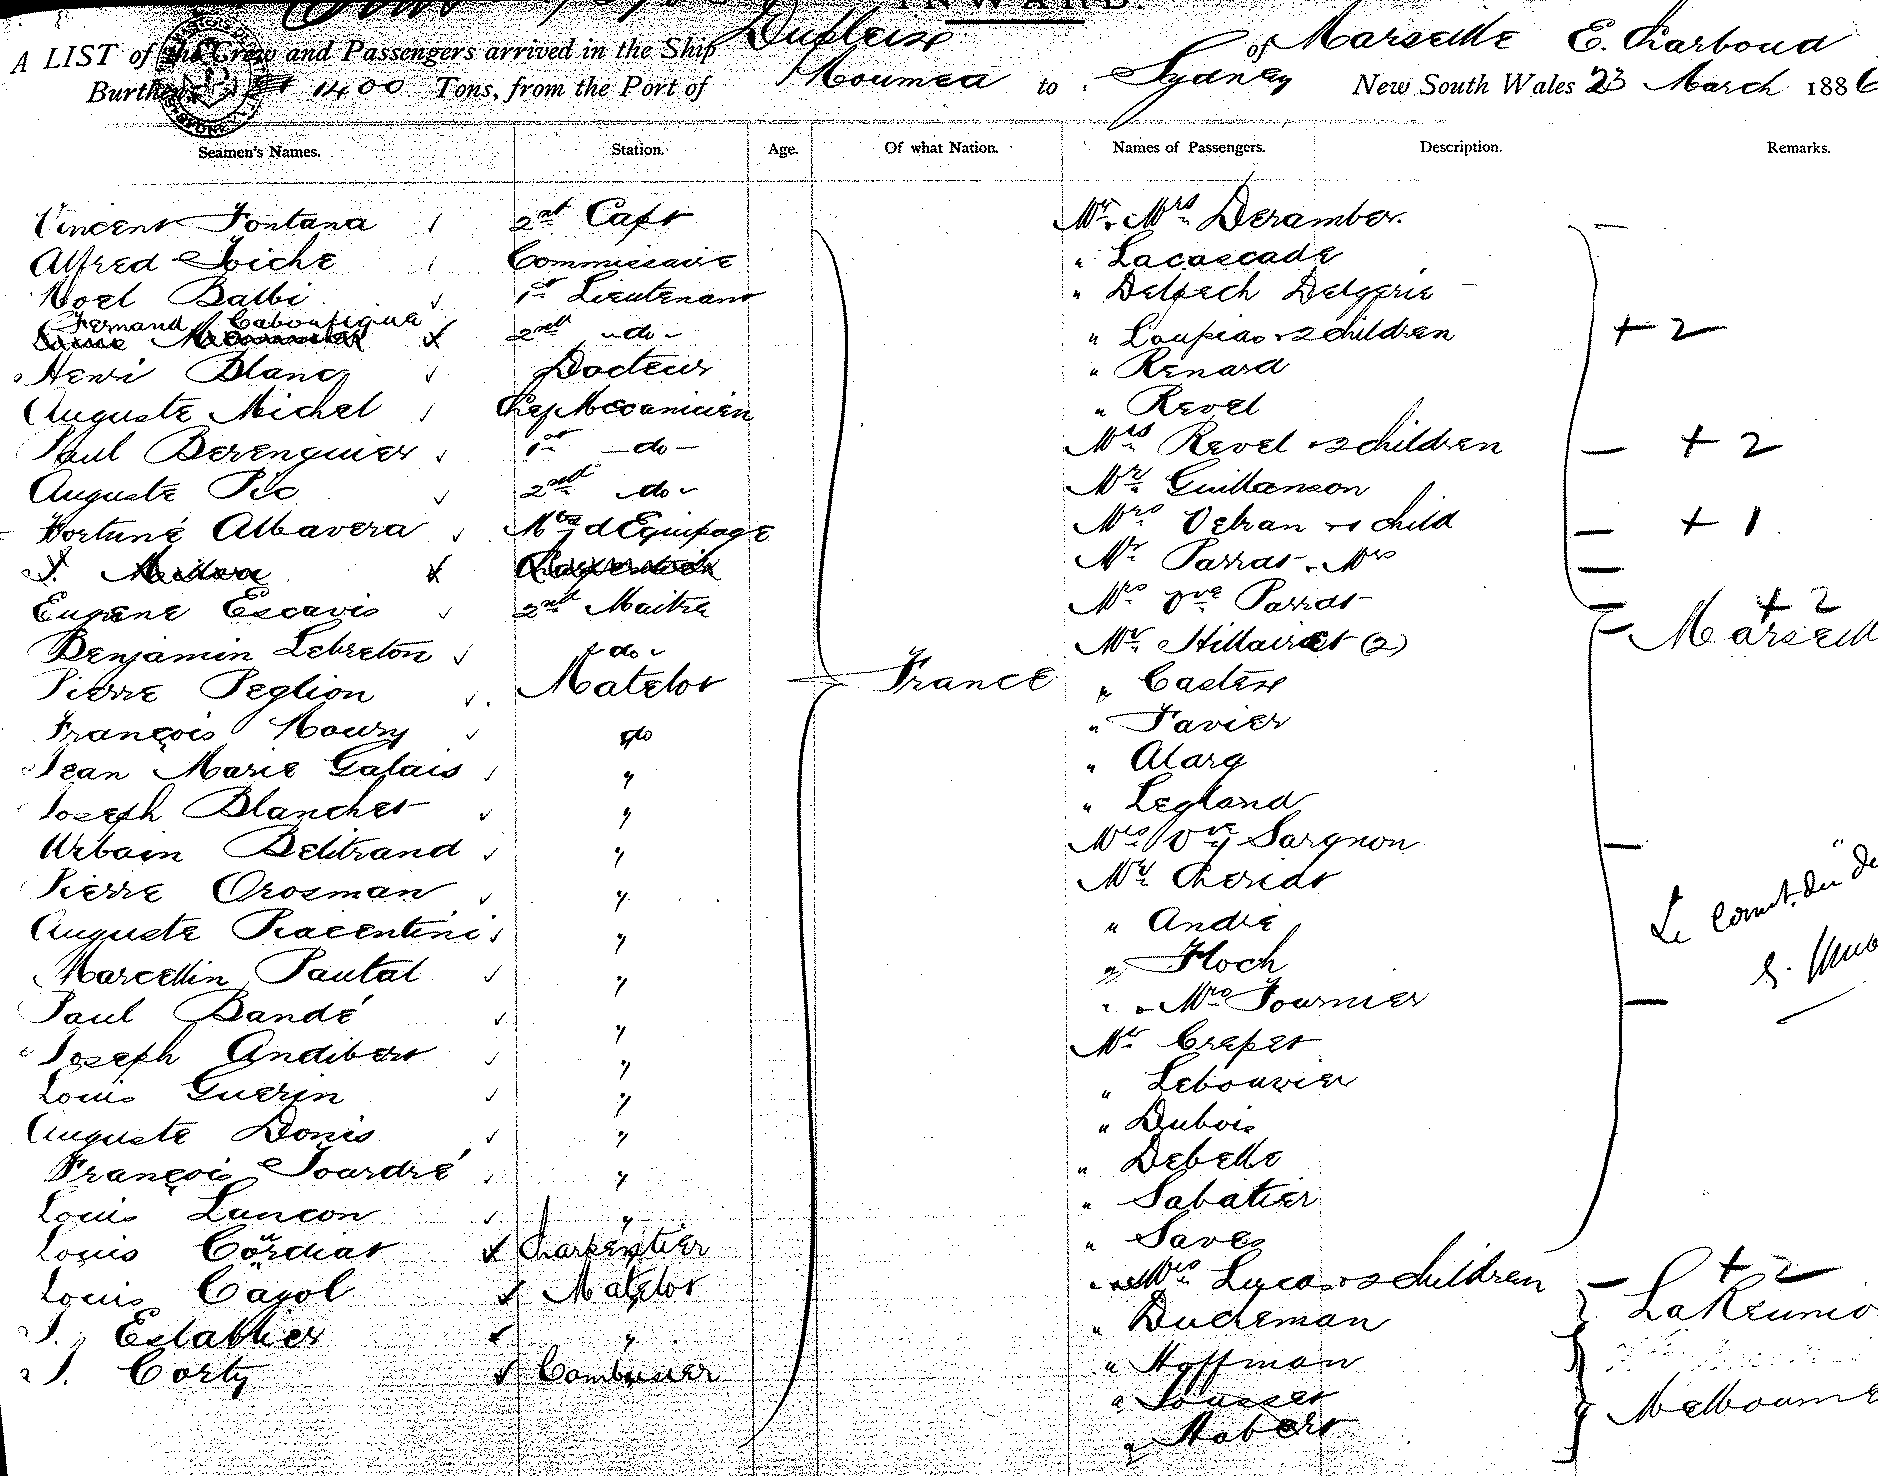 INWARD.
A LIST of the Crew and Passengers arrived in the Ship Dupleix of Marseille E. Charboud
Burthen 1400 Tons, from the Port of Noumea to Sydney New South Wales 23 March 1886
Seamen's Names. Station. Age. Of what Nation. Names of Passengers. Description. Remarks.
Vincent Fontana 2nd Capt Mr. Mrs Derambez.
Alfred Commissaire " Lacascade
Noel Balbi 1st Lieutenant " Delpech Delgerie
Fernand Caboufigue
2nd -do- " Loupias & 2 children + 2
Henri Blanc Docteur " Renard
Auguste Michel Chef Mecanicien " Revel
Paul Berenguier 1st -do- Mrs Revel & 2 children + 2
Auguste Pic 2nd -do- Mr Guillanson
Fortuné Albavera Mtre d'Equipage Mrs Vetran & 1 child + 1
Mr Parras. Mrs
Eugene Escavis 2nd Maitre Mrs Vve Parras + 2
Benjamin Lebreton -do- Mr Hillairet (2) Marseill
Pierre Peglion Matelot France " Castex
François Noury do " Favier
Jean Marie Galais " " Alary
Joseph Blanchet " " Legland
Urbain Belitrand " Mrs Vve Sargnon
Pierre Orosman " Mr Cheriat
Auguste Piacentini " " André
Marcellin Pautal " " Floch
Paul Bandé " " " Mrs Fournier
Joseph Andibert " Mr Crepet
Louis Guerin " " Lebouvier
Auguste Donis " " Dubois
François Jourdré " " Debello
Louis Lancon " " Sabatier
Louis Cordiat Charpentier " Saves
Louis Cayol Matelot " Mrs Lucas & 2 children + 2
J. Establier " " Ducheman La Reunio
J. Corty Cambusier " Hoffman
" Sousset Melbourne
" Hobert
Le Comt. du de